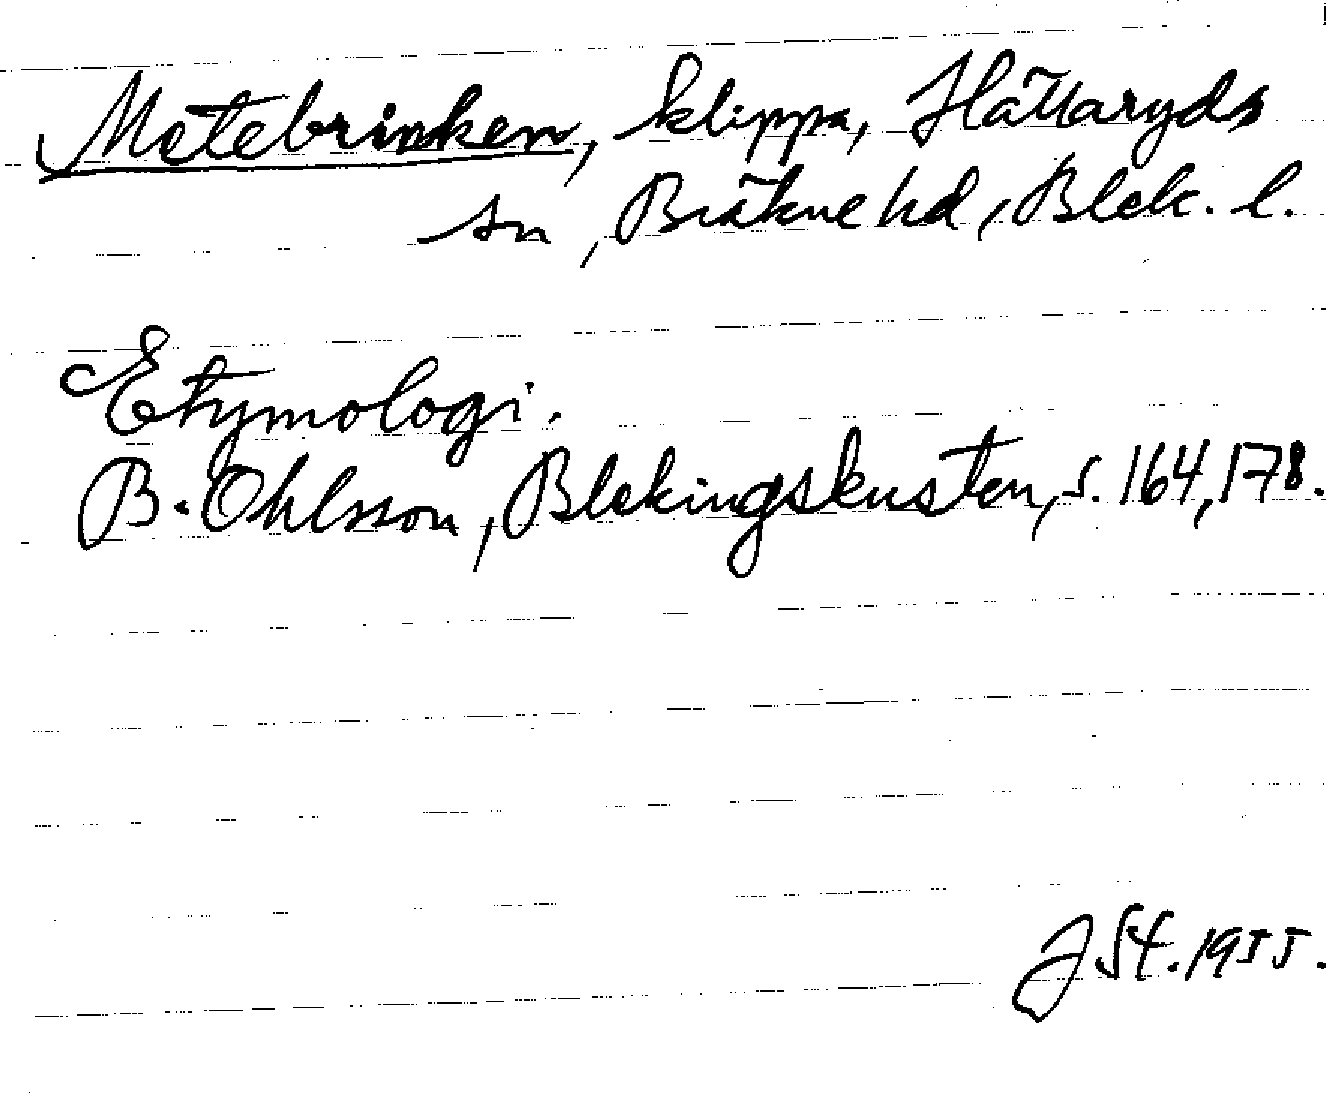 Metebrinken, klippa, Hällaryds
sn, Bräkne hd, Blek. l.
Etymologi.
B. Ohlsson, Blekingskusten, s. 164, 178.
JSt. 1955.